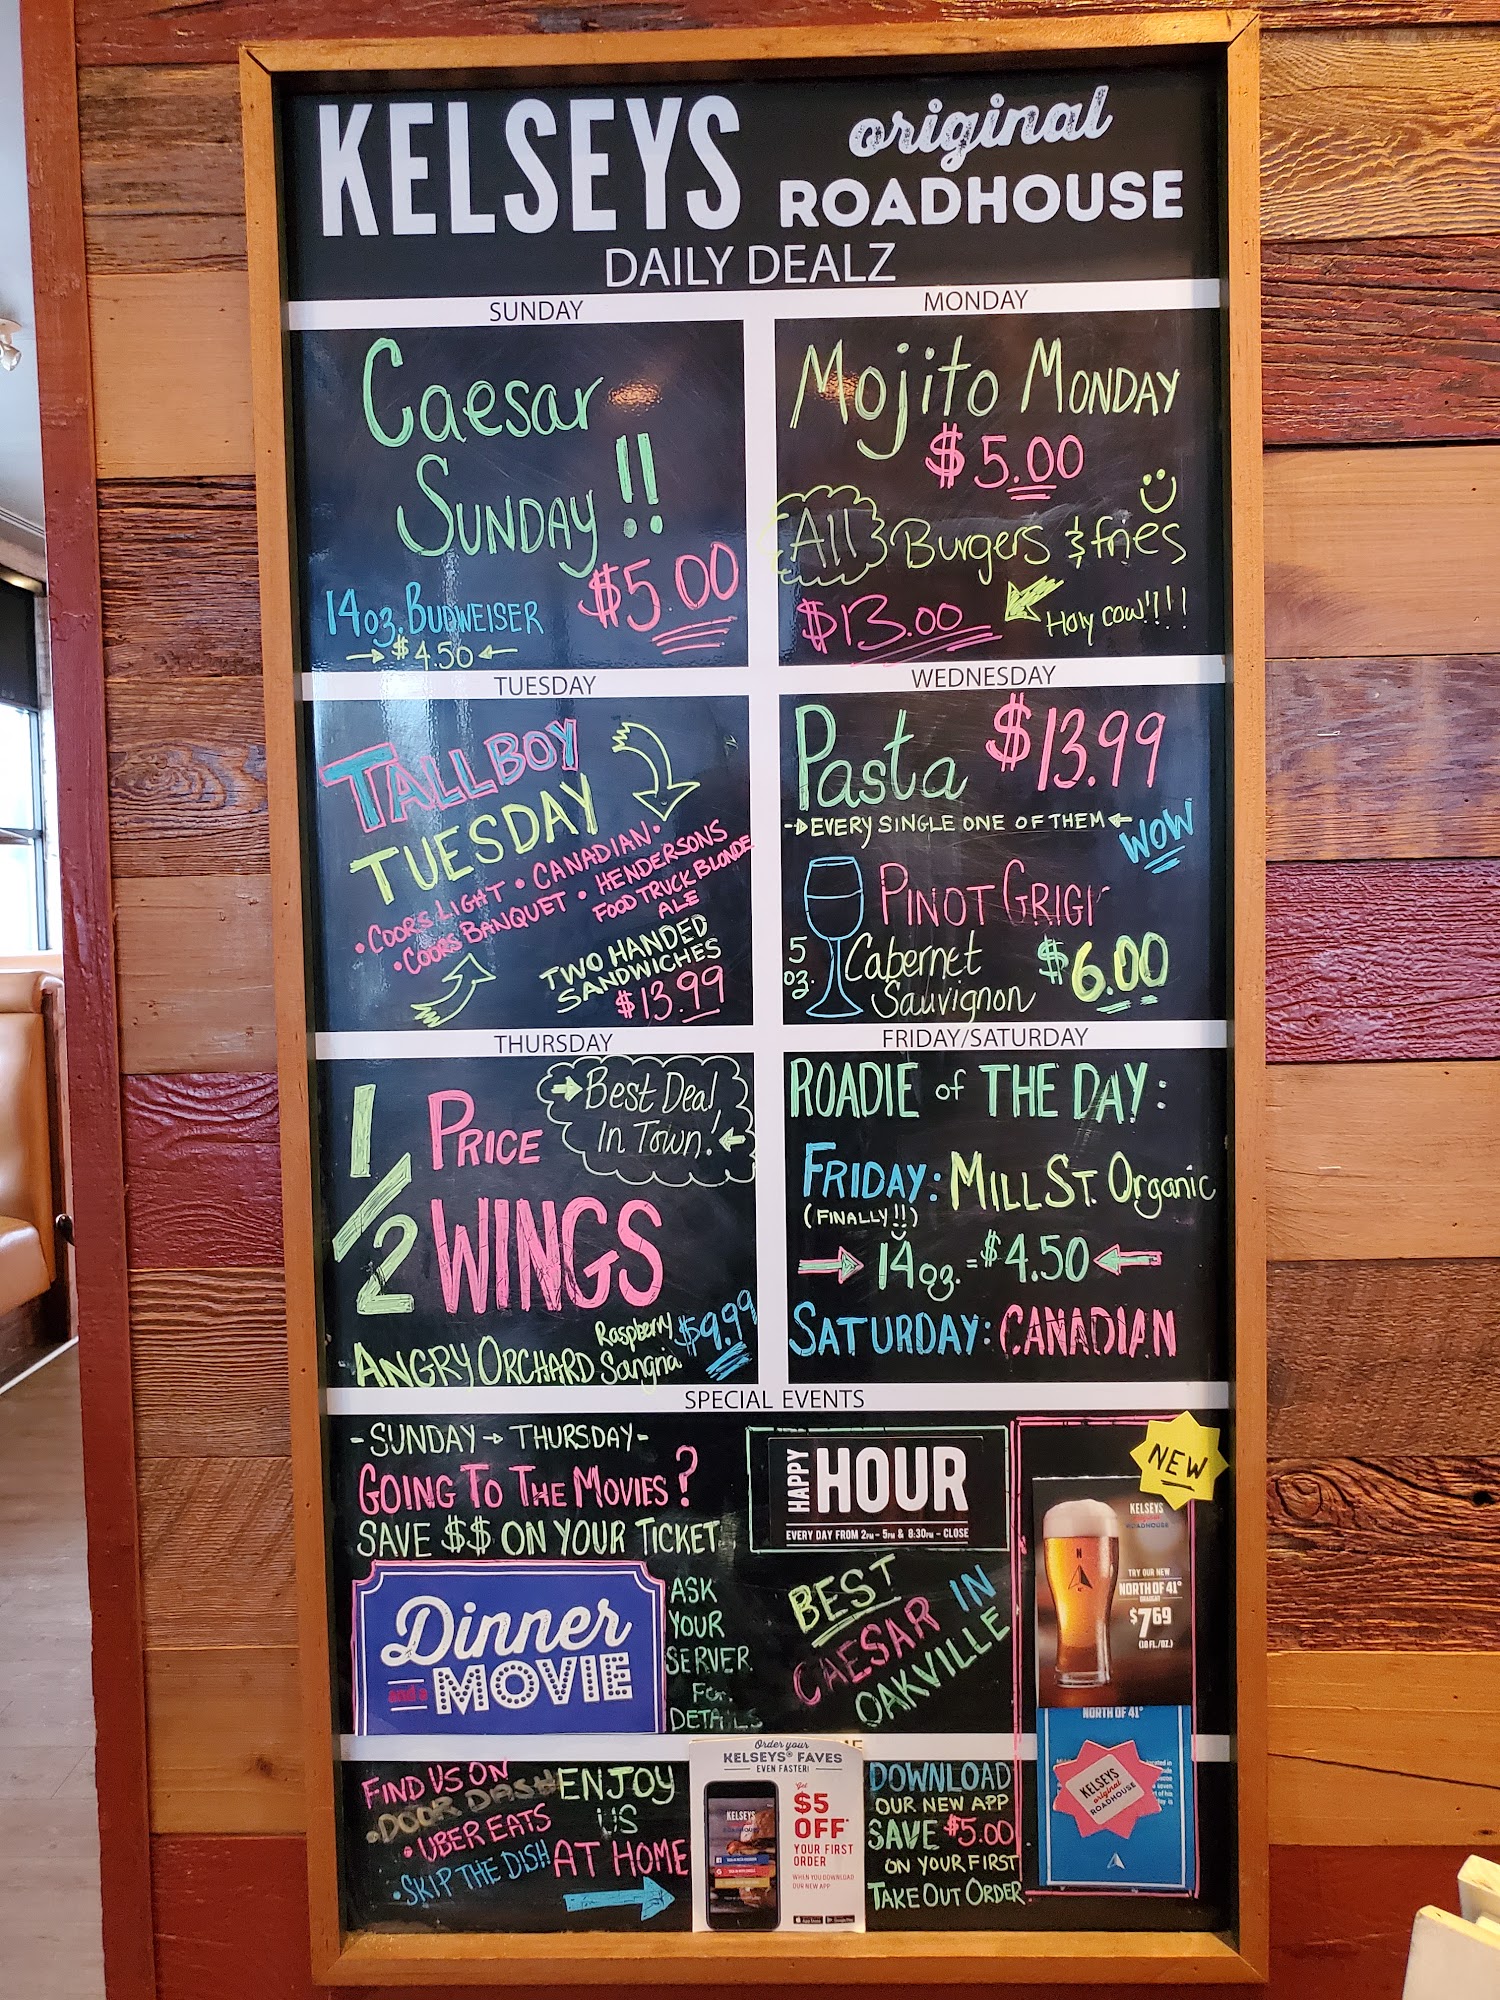 KELSEYS original
ROADHOUSE
DAILY DEALZ
SUNDAY
Caesar
SUNDAY!!
$5.00
14oz. BUDWEISER
$4.50
MONDAY
Mojito MONDAY
$5.00
All Burgers & fries
$13.00
Holy cow!!!!
TUESDAY
TALLBOY
TUESDAY
• COORS LIGHT • CANADIAN •
• COORS BANQUET • HENDERSONS
FOOD TRUCK BLONDE
ALE
TWO HANDED
SANDWICHES
$13.99
WEDNESDAY
Pasta $13.99
EVERY SINGLE ONE OF THEM
WOW
PINOT GRIGI
5
oz.
Cabernet
Sauvignon
$6.00
THURSDAY
1/2 PRICE
WINGS
Best Deal
In Town!
ANGRY ORCHARD
Raspberry
Sangria
$9.99
FRIDAY/SATURDAY
ROADIE of THE DAY:
FRIDAY: MILL ST. Organic
(FINALLY!!)
14oz. = $4.50
SATURDAY: CANADIAN
SPECIAL EVENTS
- SUNDAY → THURSDAY -
GOING TO THE MOVIES?
SAVE $$ ON YOUR TICKET
Dinner
and a MOVIE
ASK
YOUR
SERVER
FOR
DETAILS
HAPPY HOUR
EVERY DAY FROM 2PM - 5PM & 8:30PM - CLOSE
BEST
CAESAR IN
OAKVILLE
NEW
KELSEYS
original
ROADHOUSE
TRY OUR NEW
NORTH OF 41°
DRAUGHT
$7.69
(18 FL./OZ.)
NORTH OF 41°
KELSEYS
original
ROADHOUSE
FIND US ON
• DOOR DASH
• UBER EATS
• SKIP THE DISH
ENJOY
US
AT HOME
Order your
KELSEYS® FAVES
EVEN FASTER!
KELSEYS
Get
$5
OFF*
YOUR FIRST
ORDER
WHEN YOU DOWNLOAD
OUR NEW APP
DOWNLOAD
OUR NEW APP
SAVE $5.00
ON YOUR FIRST
TAKE OUT ORDER